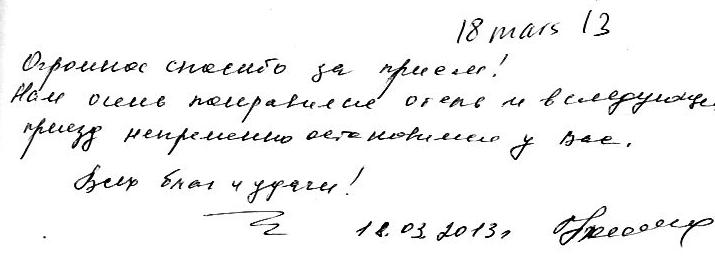 18 mars 13
Огромное спасибо за прием!
Нам очень понравился отель и в следующий
приезд непременно остановимся у Вас.
Всех благ и удачи!
18.03.2013г